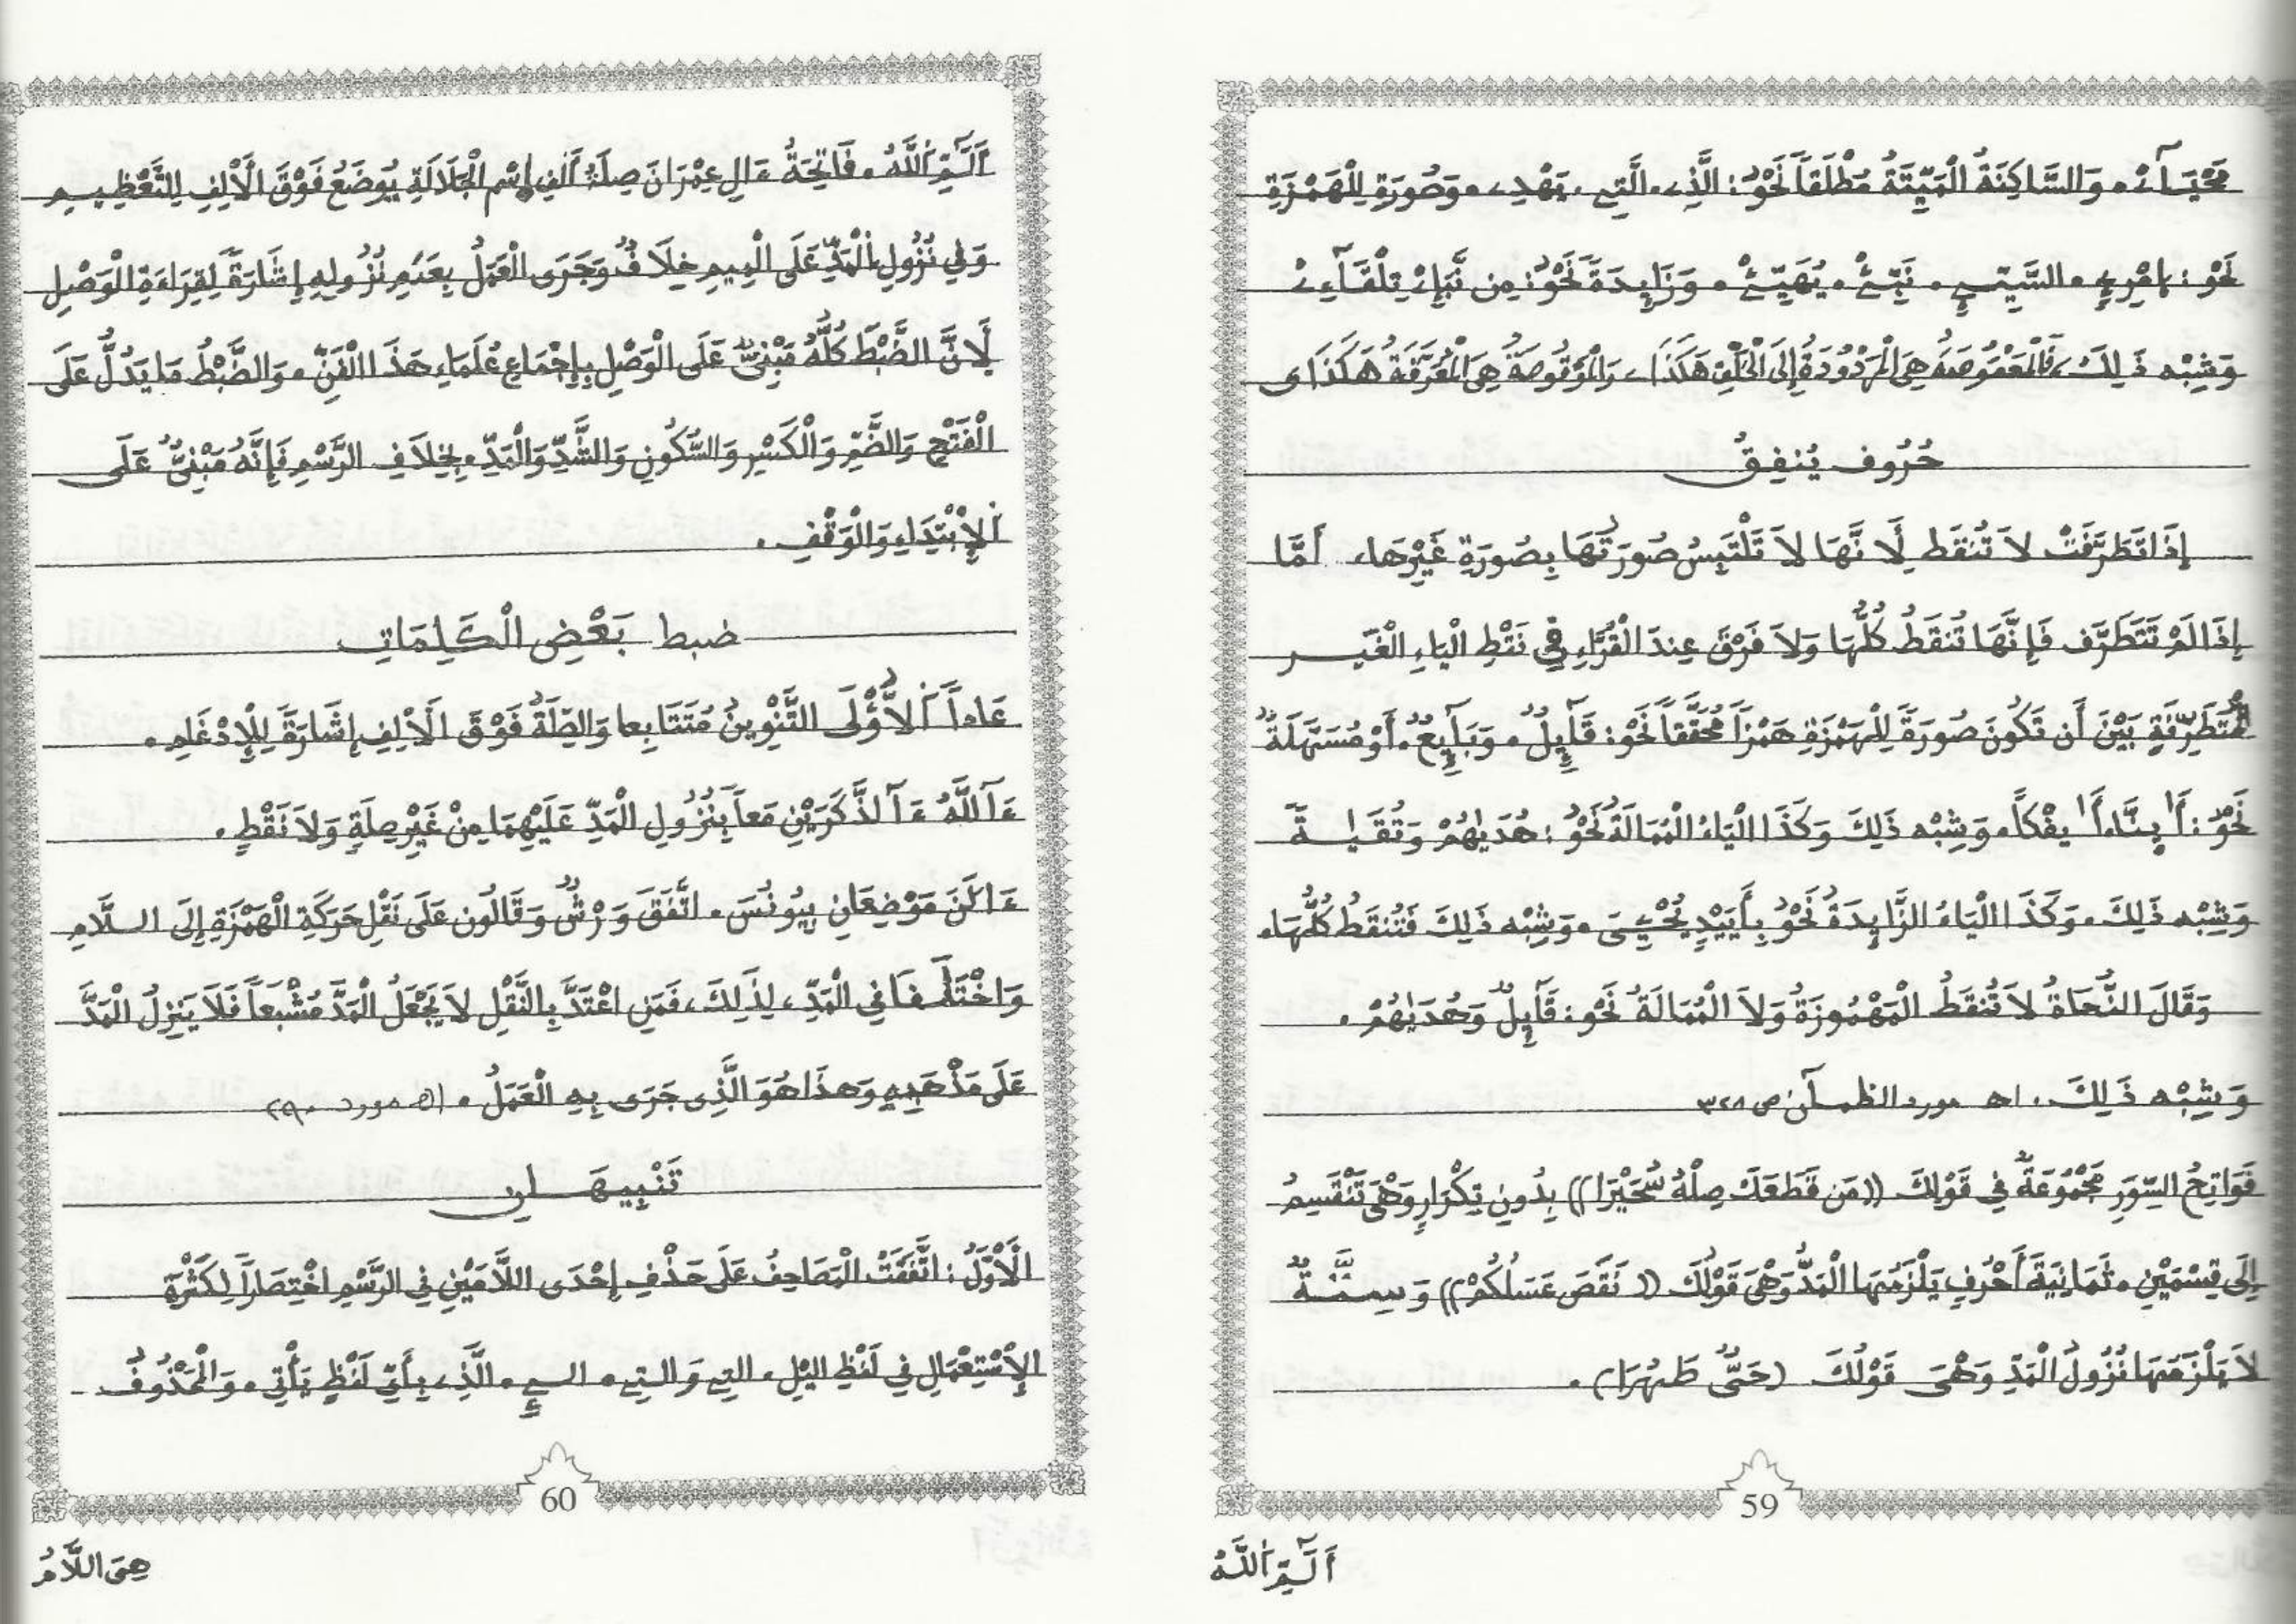 مَحْيَآءْ. وَالسَّاكِنَةُ الْمَيِّتَةُ مُطْلَقاً نَحْوُ: الَّذِے. الَّتِے. يَهْدِے. وَصُورَةٍ لِلْهَمْزَةِ
نَحْوُ: اِمْرِےٍ. السَّيِّےِ. نَبِّےْ. يُهَيِّےْ. وَزَايِدَةً نَحْوُ: مِن نَّبَإِےْ تِلْقَآءِےْ
وَشِبْهِ ذَلِكَ، فَالْمَعْقُوصَةُ هِيَ الْمَرْدُودَةُ إِلَى الْخَلْفِ هَكَذَا ے وَالْمَوْقُوصَةُ هِيَ الْمُعَرَّقَةُ هَكَذَا ى
حُرُوفُ يُنفِقُ
إِذَا تَطَرَّفَتْ لاَ تُنقَط لِأَنَّهَا لاَ تَلْتَبِسُ صُورَتُهَا بِصُورَةِ غَيْرِهَا، أَمَّا
إِذَا لَمْ تَتَطَرَّف فَإِنَّهَا تُنقَطُ كُلُّهَا وَلاَ فَرْقَ عِندَ الْقُرَّاءِ فِي نَقْطِ الْيَاءِ الْغَيْرِ
الْمُتَطَرِّفَةِ بَيْنَ أَن تَكُونَ صُورَةً لِلْهَمْزَةِ هَمْزاً مُحَقَّقاً نَحْوُ: قَآئِلٌ. وَبَآئِعٌ. أَوْ مُسَهَّلَةً
نَحْوُ: أَ.ينَّا. أَ.يفْكاً. وَشِبْهِ ذَلِكَ وَكَذَا الْيَاءُ الْمُمَالَةُ نَحْوُ: هُدَيٰهُمْ وَتُقَيٰةً
وَشِبْهِ ذَلِكَ. وَكَذَا الْيَاءُ الزَّايِدَةُ نَحْوُ بِأَييْدٍ يُحْيِي. وَشِبْهِ ذَلِكَ فَتُنقَطُ كُلُّهَا.
وَقَالَ النُّحَاةُ لاَ تُنقَطُ الْمَهْمُوزَةُ وَلاَ الْمُمَالَةُ نَحْوُ: قَآئِلٌ وَهُدَيٰهُمْ.
وَشِبْهِ ذَلِكَ. اهـ مورد الظمـآن ص ٣٢٨
فَوَاتِحُ السُّوَرِ مَجْمُوعَةٌ فِي قَوْلِكَ ((مَن قَطَعَكَ صِلْهُ سُحَيْرَا)) بِدُونِ تِكْرَارٍ وَهْيَ تَنْقَسِمُ
إِلَى قِسْمَيْنِ. ثَمَانِيَةَ أَحْرُفٍ يَلْزَمُهَا الْمَدُّ وَهْيَ قَوْلُكَ ((نَقَصَ عَسَلُكُمْ)) وَسِتَّةٌ
لاَ يَلْزَمُهَا نُزُولُ الْمَدِّ وَهْيَ قَوْلُكَ (حَيٌّ طَهُرَا).
59
أَلَٓمِّٓ اَ۬للَّهُ
أَلَٓمِّٓ اَ۬للَّهُ. فَاتِحَةُ ءَالِ عِمْرَانَ صِلَةُ أَلِفِ اِسْمِ الْجَلَالَةِ يُوضَعُ فَوْقَ الْأَلِفِ لِلتَّعْظِيمِ
وَفِي نُزُولِ الْمَدِّ عَلَى الْمِيمِ خِلَافٌ وَجَرَى الْعَمَلُ بِعَدَمِ نُزُولِهِ إِشَارَةً لِقِرَاءَةِ الْوَصْلِ
لِأَنَّ الضَّبْطَ كُلَّهُ مَبْنِيٌّ عَلَى الْوَصْلِ بِإِجْمَاعِ عُلَمَاءِ هَذَا الْفَنِّ. وَالضَّبْطُ مَا يَدُلُّ عَلَى
الْفَتْحِ وَالضَّمِّ وَالْكَسْرِ وَالسُّكُونِ وَالشَّدِّ وَالْمَدِّ. بِخِلاَفِ الرَّسْمِ فَإِنَّهُ مَبْنِيٌّ عَلَى
اَلإِبْتِدَاءِ وَالْوَقْفِ.
ضبط بَعْضِ الْكَلِمَاتِ
عَاداً اَلُاولَى التَّنْوِينُ مُتَتَابِعا وَالصِّلَةُ فَوْقَ الْأَلِفِ إِشَارَةً لِلْإِدْغَامِ.
ءَآللَّهُ ءَآلذَّكَرَيْنِ مَعاً بِنُزُولِ الْمَدِّ عَلَيْهِمَا مِنْ غَيْرِ صِلَةٍ وَلاَ نَقْطٍ.
ءَالَنَ مَوْضِعَانِ بِيُونُسَ. اتَّفَقَ وَرْشٌ وَقَالُون عَلَى نَقْلِ حَرَكَةِ الْهَمْزَةِ إِلَى اللَّامِ
وَاخْتَلَفَا فِي الْمَدِّ، لِذَلِكَ، فَمَنِ اعْتَدَّ بِالنَّقْلِ لاَ يَجْعَلُ الْمَدَّ مُشْبَعاً فَلاَ يَنزِلُ الْمَدَّ
عَلَى مَذْهَبِهِ وَهذَا هُوَ الَّذِى جَرَى بِهِ الْعَمَلُ. (اهـ مورد ٩٠)
تَنْبِيهَـانِ
الْأَوَّلُ: اتَّفَقَتْ الْمَصَاحِفُ عَلَى حَذْفِ إِحْدَى اللاَّمَيْنِ فِي الرَّسْمِ اخْتِصَاراً لِكَثْرَةِ
الإِسْتِعْمَالِ فِي لَفْظِ اليْلِ. التِے وَالتِے. الےِ. الَّذِے. بِأَيِّ لَفْظٍ يَأْتِي. وَالْمَحْذُوفُ -
60
هِيَ اللاَّمُ